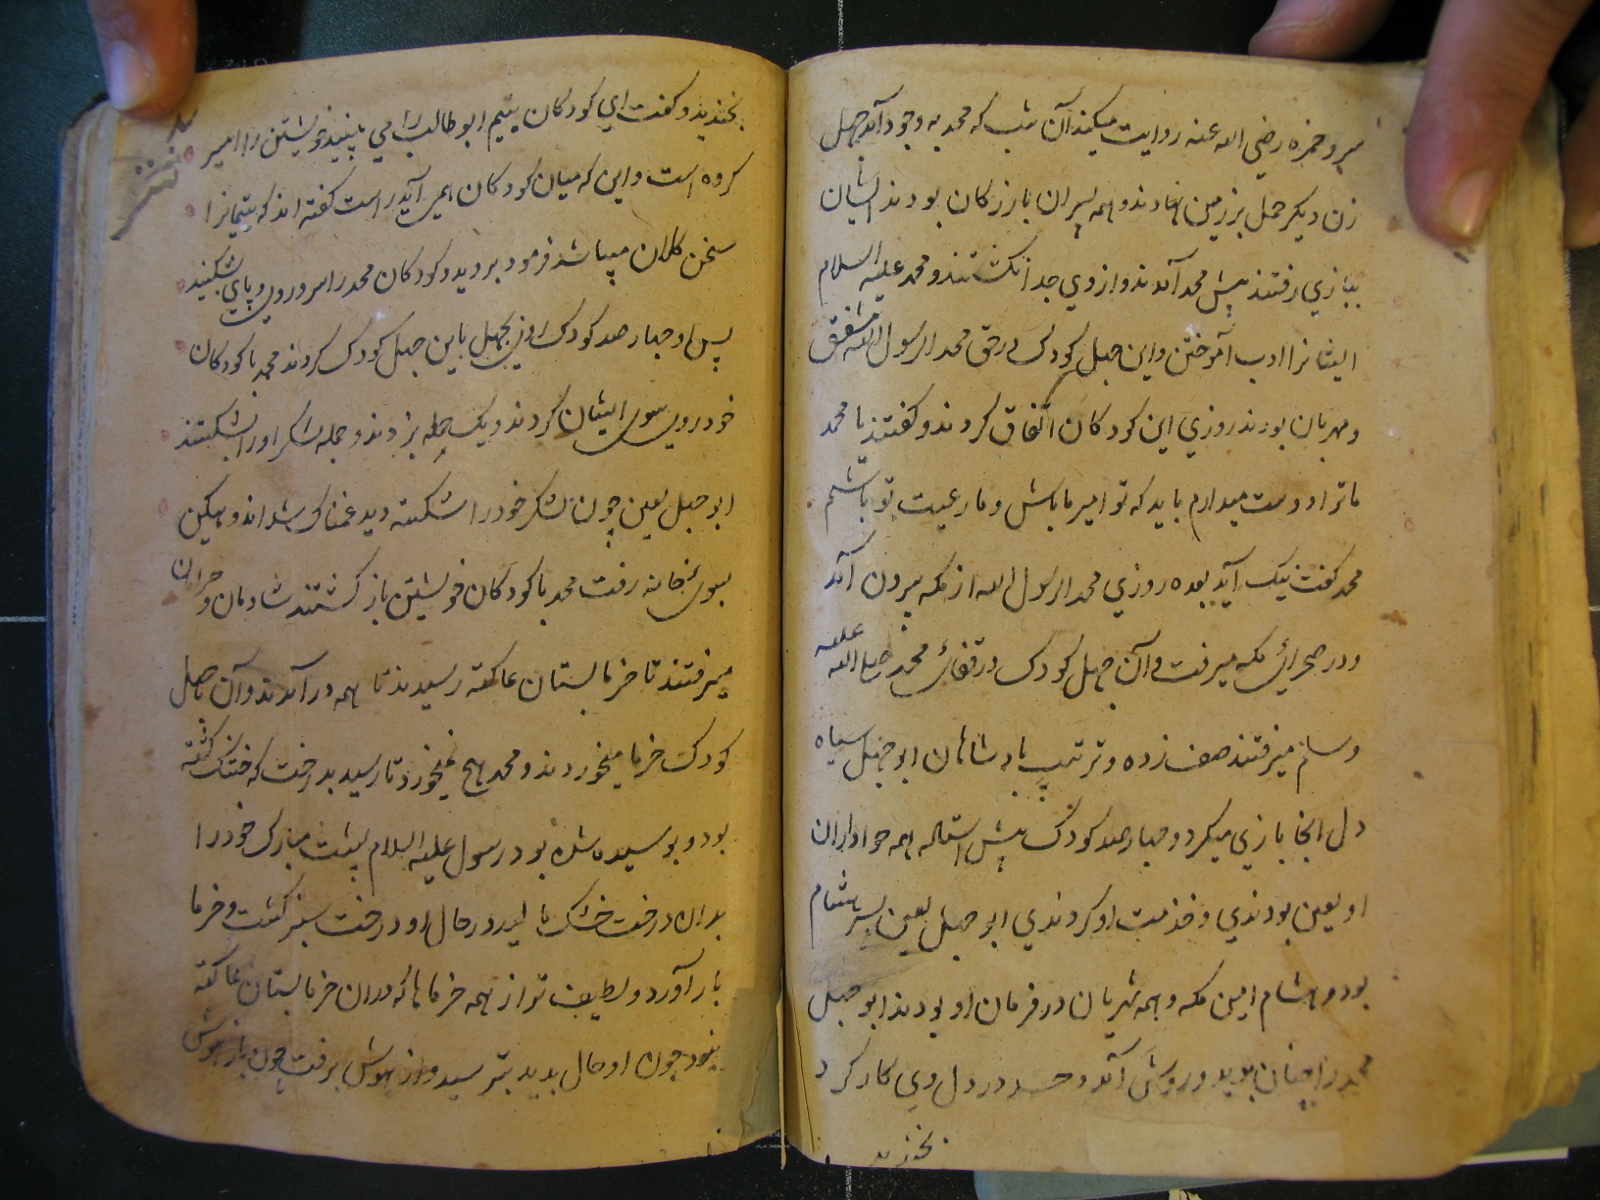 میر و حمزه رضی الله عنه روایت میکند آن شب که محمد به وجود آمد چهل
زن دیگر حمل بر زمین نهادند و همه پسران بارزکان بودند ایشان
ببازي رفتند پیش محمد آمدند و از وي جدا نکشتند و محمد علیه السلام
ایشانرا ادب آموختن و این چهل کودک بر حق محمد الرسول الله مشفق
و مهربان بودند روزي این کودکان اتفاق کردند و کفتند یا محمد
ما ترا دوست میدارم باید که تو امیر ما باش و ما رعیت تو باشیم
محمد کفت نیک آید بعده روزي محمد الرسول الله از مکه بیرون آمد
و در صحرائ مکه میرفت و آن چهل کودک در قفائ محمد صلی الله علیه
وسلم میرفتند صف زده و ترتیب بادشاهان ابوجهل سیاه
دل انجا بازي میکرد و چهار صد کودک پیش استاله همه هواداران
او لعین بودندي و خدمت او کردندي ابوجهل لعین پسر هشام
بود و هشام امین مکه و همه شهریان در فرمان او بودند ابوجهل
محمد را چنان بدید در روش آمد و حسد در دل وي کار کرد
بخندید
بخندید و کفت اي کودکان یتیم ابوطالب را مي بینید خویشتن را امیر
کرده است و این که میان کودکان امیر آید راست کفته اند که یتیمانرا
سخن کلان میباشد فرمود بروید و کودکان محمد را سر و روي و پاي بشکنید
پس او چهار صد کودک ابوجهل باین چهل کودک کردند محمد با کودکان
خود روي سوي ایشان کردند و یک حمله بزدند و جمله لشکر او را بشکستند
ابوجهل لعین چون لشکر خود را شکسته دید غمناک شد اندوهکین
بسوی خانه رفت محمد با کودکان خویشتن باز کشتند شادمان و
میرفتند تا خرماستان عاکفه رسیدند تا همه در آمدند و آن چهل
کودک خرما میخوردند و محمد هیچ نمیخورد تا رسید بدرخت که خشک کشته
بود و بوسیده شده بود رسول علیه السلام پشت مبارک خود را
بدان درخت خشک مالید در حال او درخت سبز کشت و خرما
بار آورد و لطیف تر از همه خرماها که دران خرماستان عاکفه
بود چون او حال بدید بترسید و از هوش برفت چون باز هوش